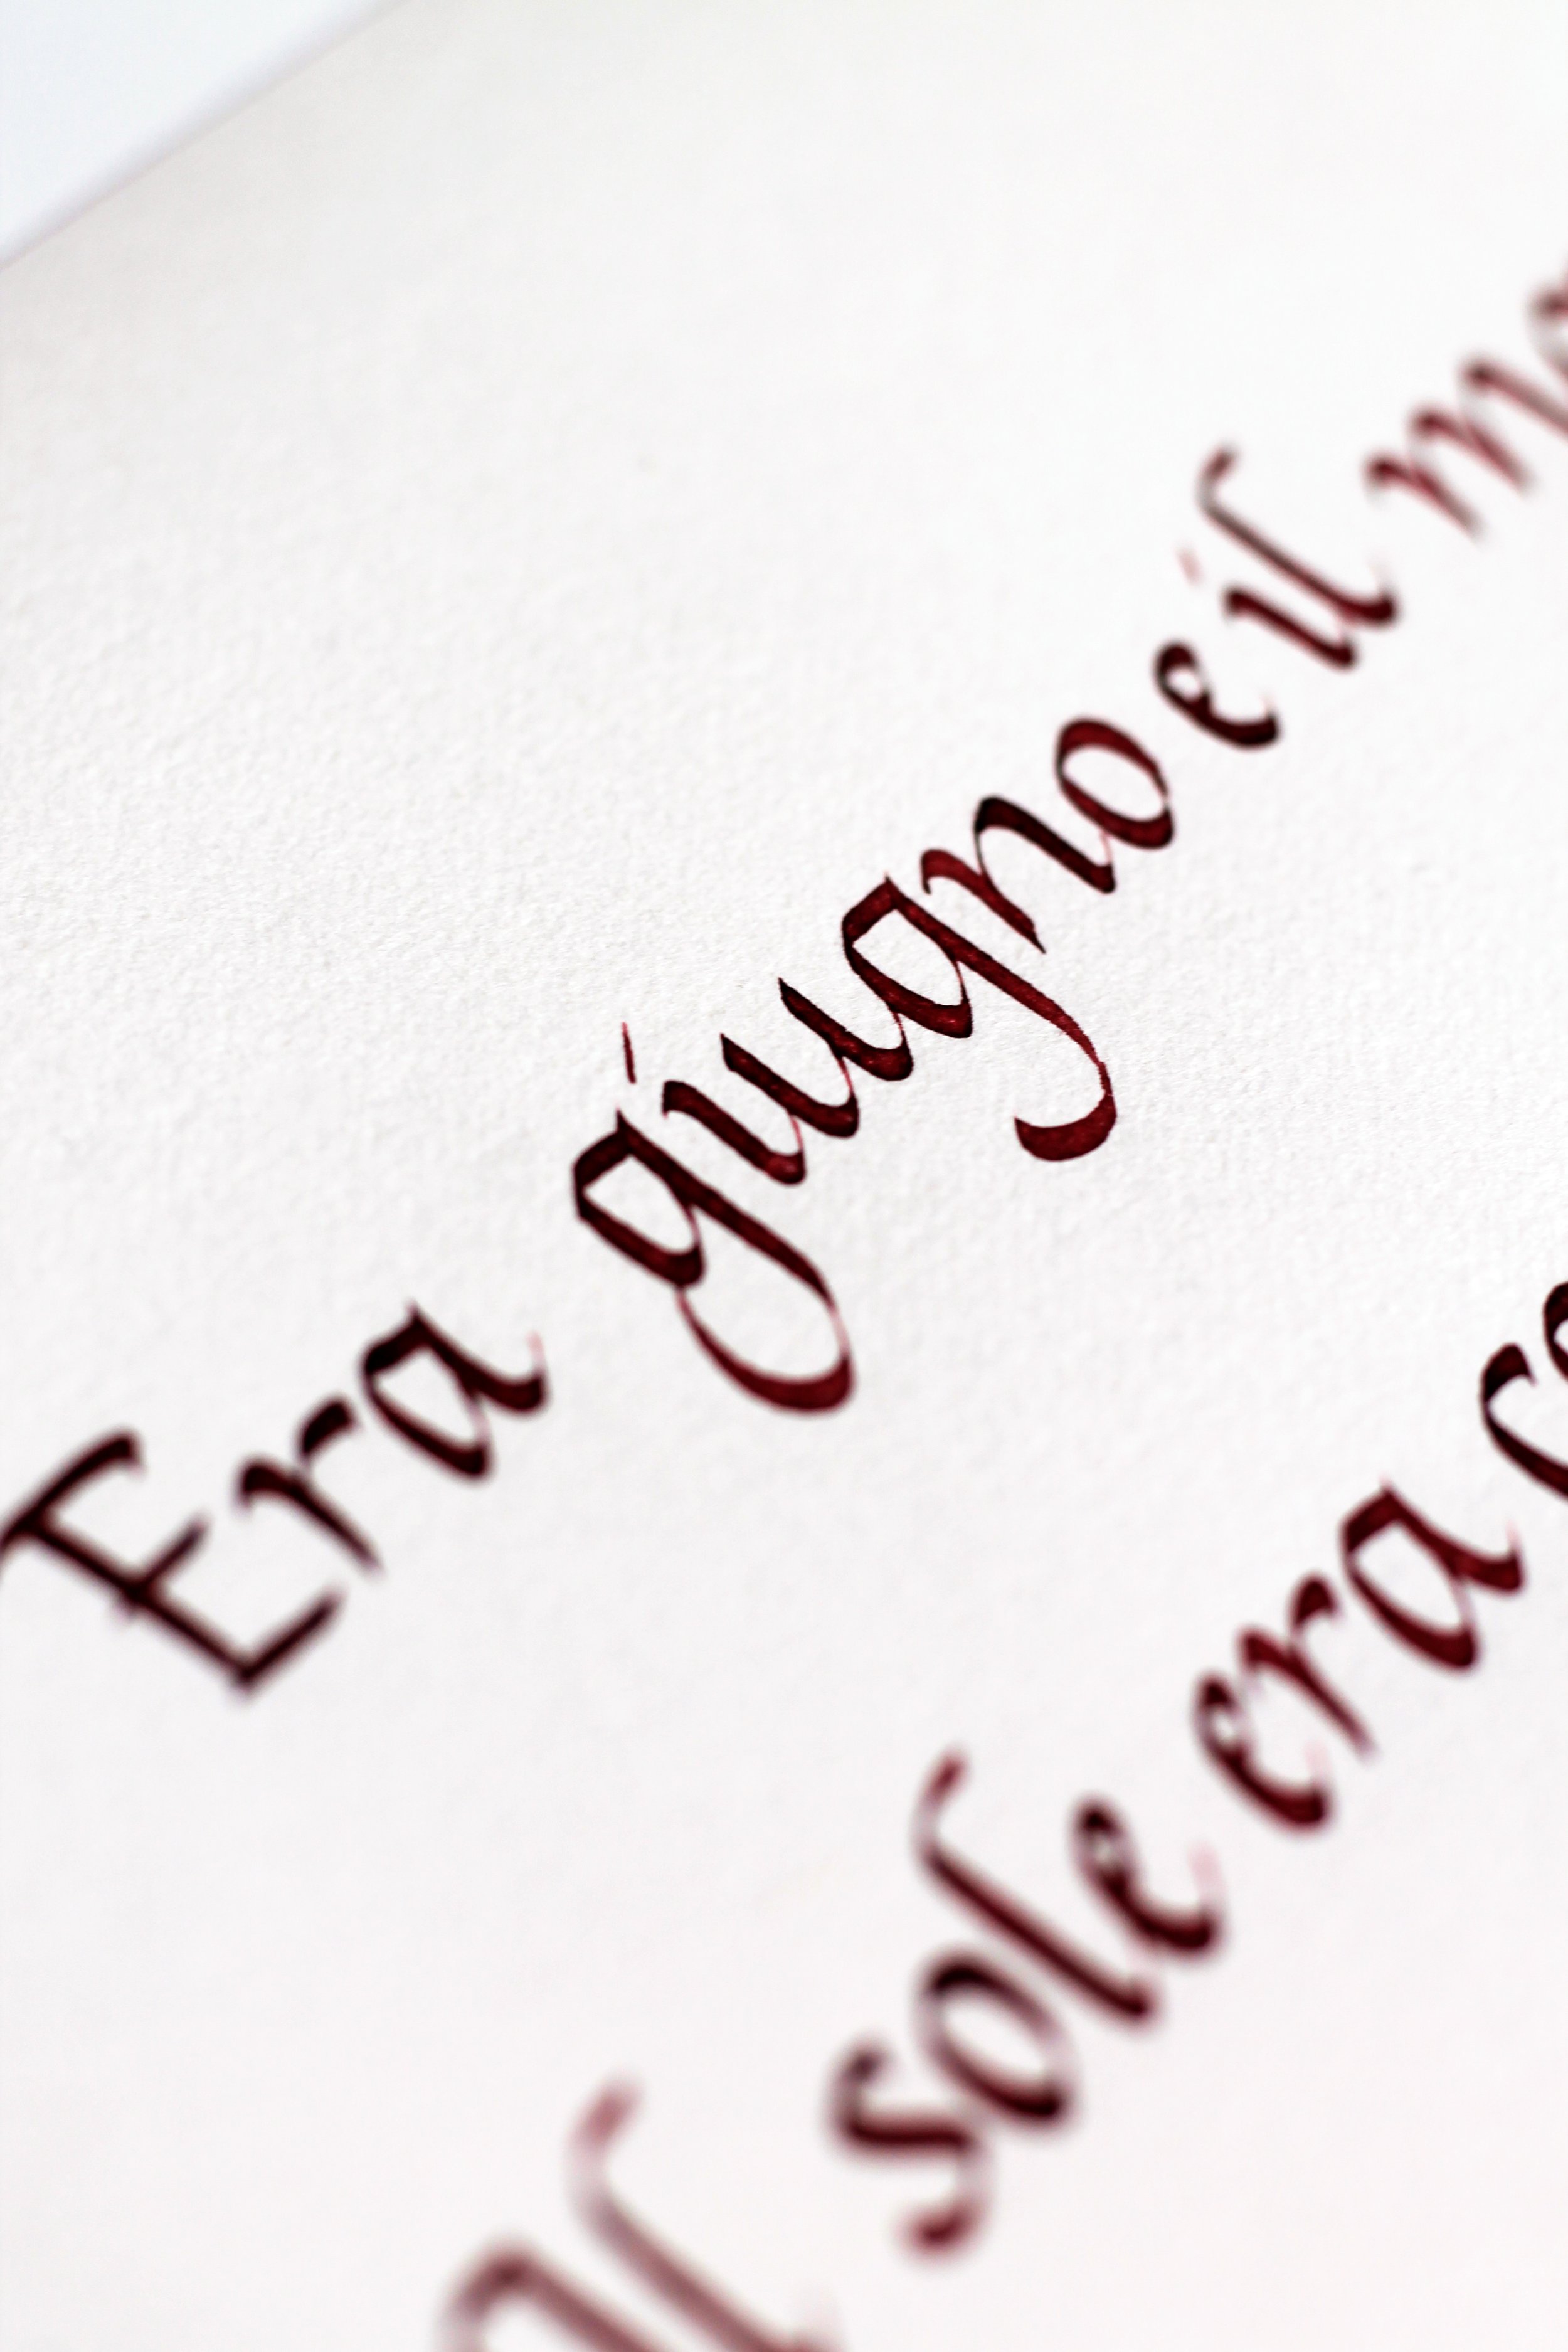 Era giugno e il
sole era